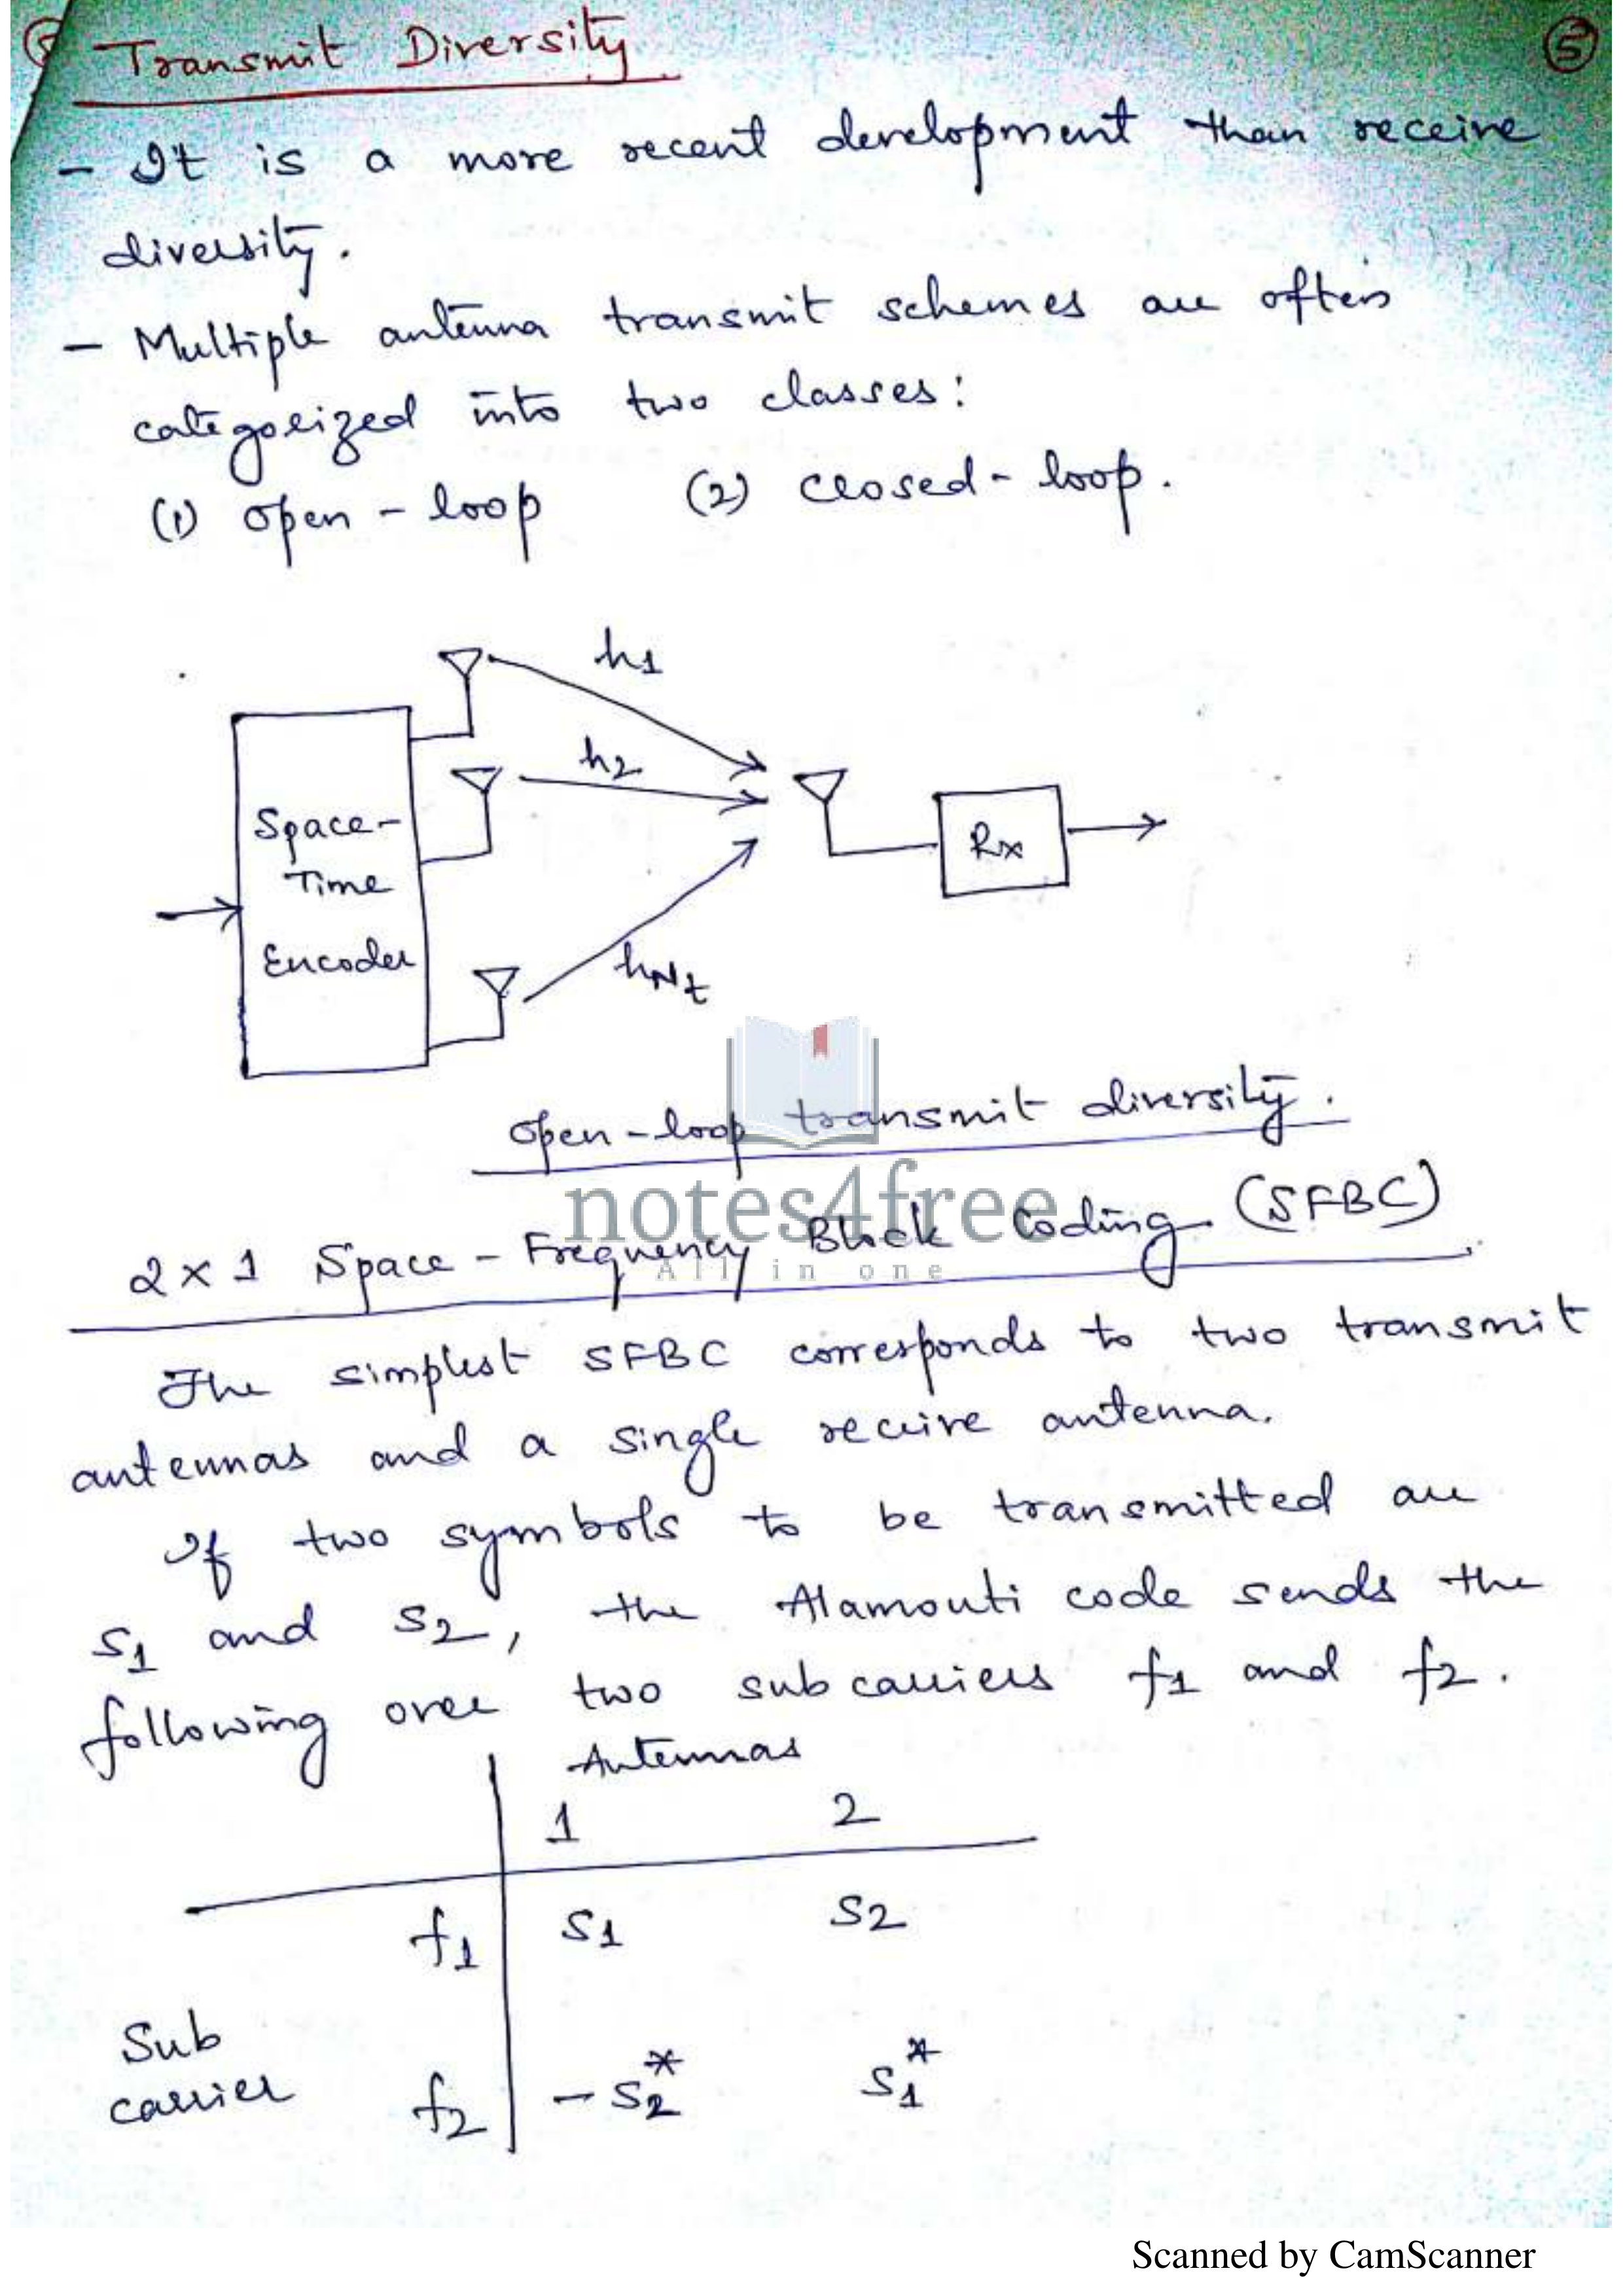 Transmit Diversity.
5
- It is a more recent development than receive
diversity.
- Multiple antenna transmit schemes are often
categorized into two classes:
(1) open-loop (2) closed-loop.
h1
h2
Space-
Time
Encoder
Rx
hNt
open-loop transmit diversity.
notes4free
All in one
2x1 Space-Frequency Block coding (SFBC)
The simplest SFBC corresponds to two transmit
antennas and a single receive antenna.
If two symbols to be transmitted are
S1 and S2, the Alamouti code sends the
following over two subcarriers f1 and f2.
Antennas
1 2
f1 S1 S2
Sub
carrier f2 -S2* S1*
Scanned by CamScanner